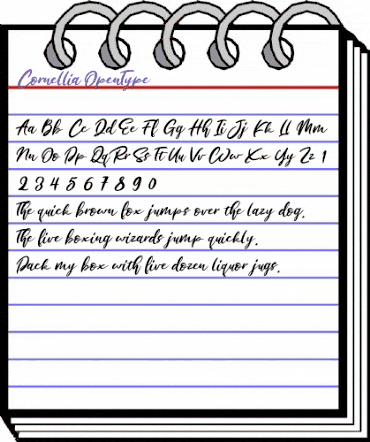 Cornellia OpenType
Aa Bb Cc Dd Ee Ff Gg Hh Ii Jj Kk Ll Mm
Nn Oo Pp Qq Rr Ss Tt Uu Vv Ww Xx Yy Zz 1
2 3 4 5 6 7 8 9 0
The quick brown fox jumps over the lazy dog.
The five boxing wizards jump quickly.
Pack my box with five dozen liquor jugs.